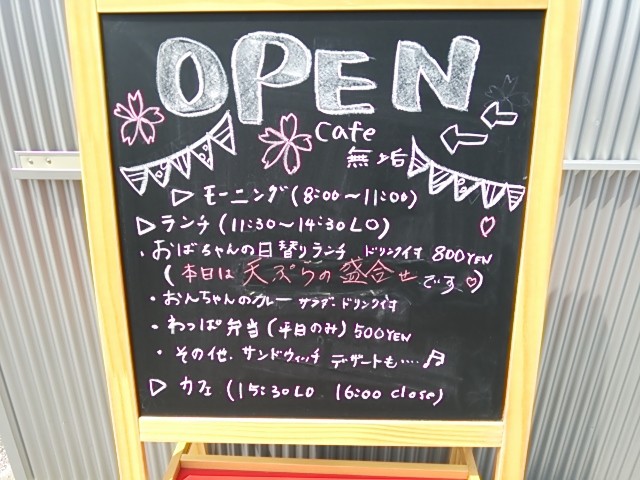 OPEN
Cafe
無垢
▷ モーニング(8:00～11:00)
▷ ランチ(11:30～14:30LO)
・おばちゃんの日替りランチ ドリンク付 800YEN
(本日は 天ぷらの盛合せです♡)
・おんちゃんのカレー サラダードリンク付
・わっぱ弁当(平日のみ)500YEN
・その他.サンドウィッチ デザートも‥‥♬
▷ カフェ(15:30LO 16:00 close)